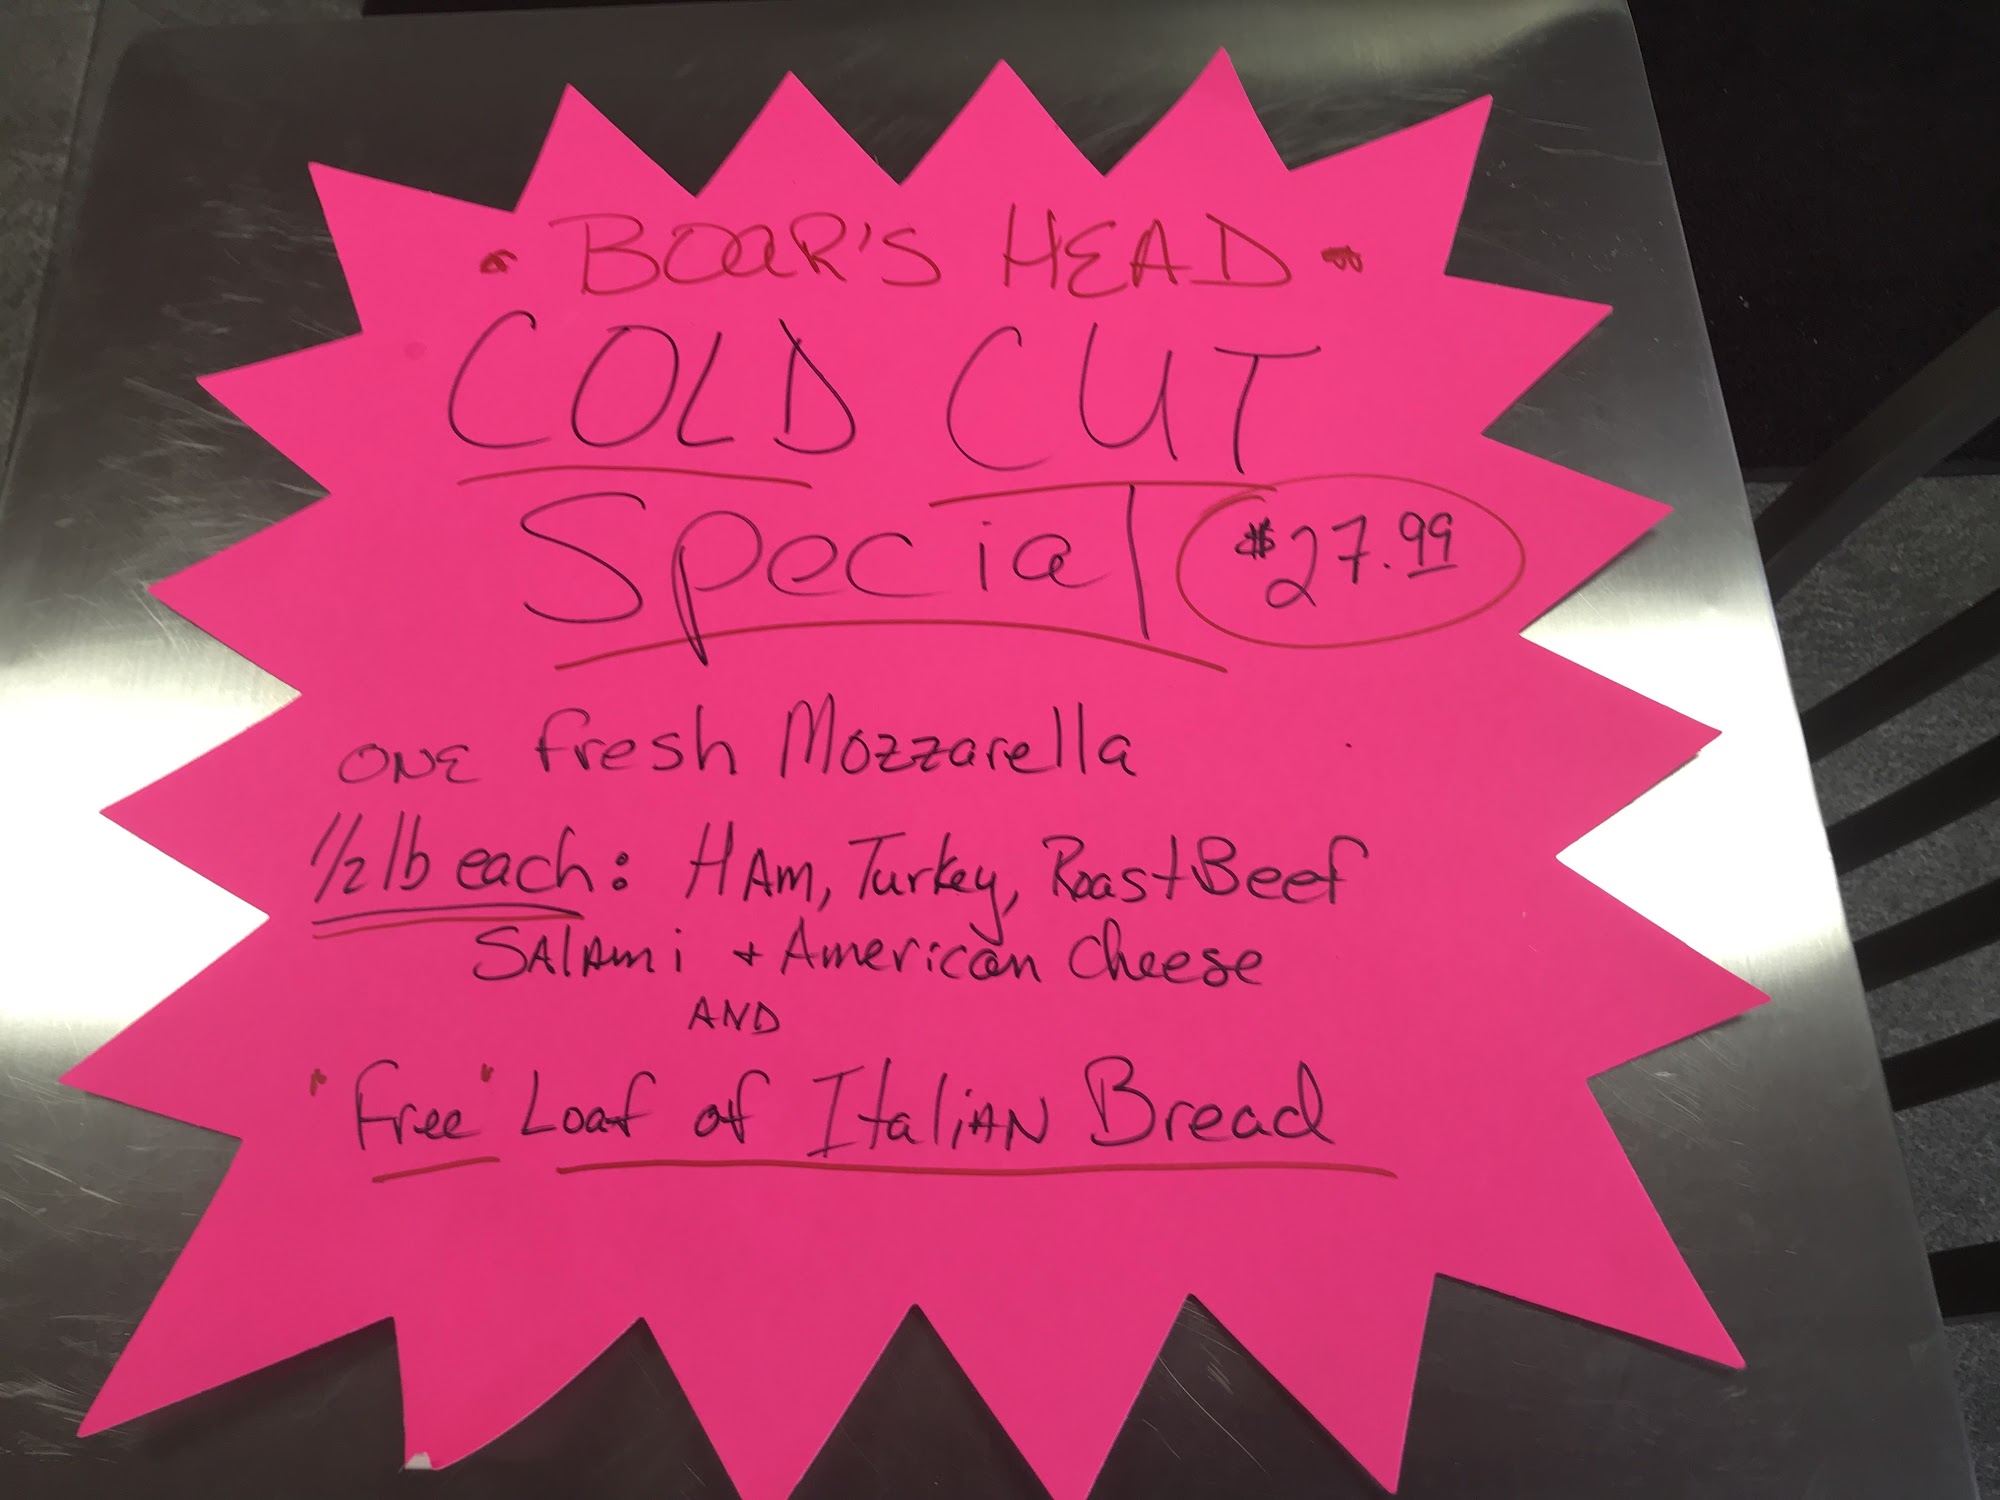 BOAR'S HEAD
COLD CUT
Special $27.99
ONE fresh Mozzarella
1/2 lb each: HAm, Turkey, Roast Beef
SAlAmi + American Cheese
AND
"Free" Loaf of ItaliAN Bread